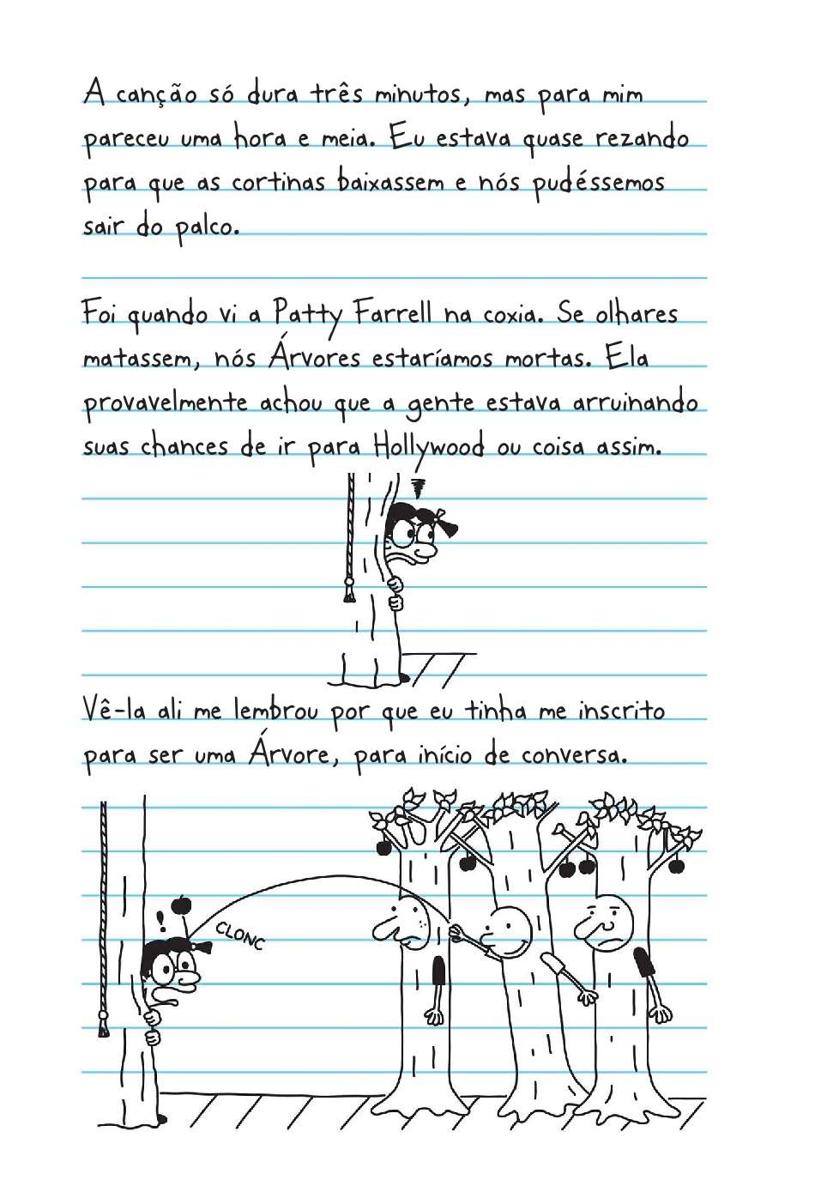 A canção só dura três minutos, mas para mim
pareceu uma hora e meia. Eu estava quase rezando
para que as cortinas baixassem e nós pudéssemos
sair do palco.
Foi quando vi a Patty Farrell na coxia. Se olhares
matassem, nós Árvores estaríamos mortas. Ela
provavelmente achou que a gente estava arruinando
suas chances de ir para Hollywood ou coisa assim.
Vê-la ali me lembrou por que eu tinha me inscrito
para ser uma Árvore, para início de conversa.
!
CLONC